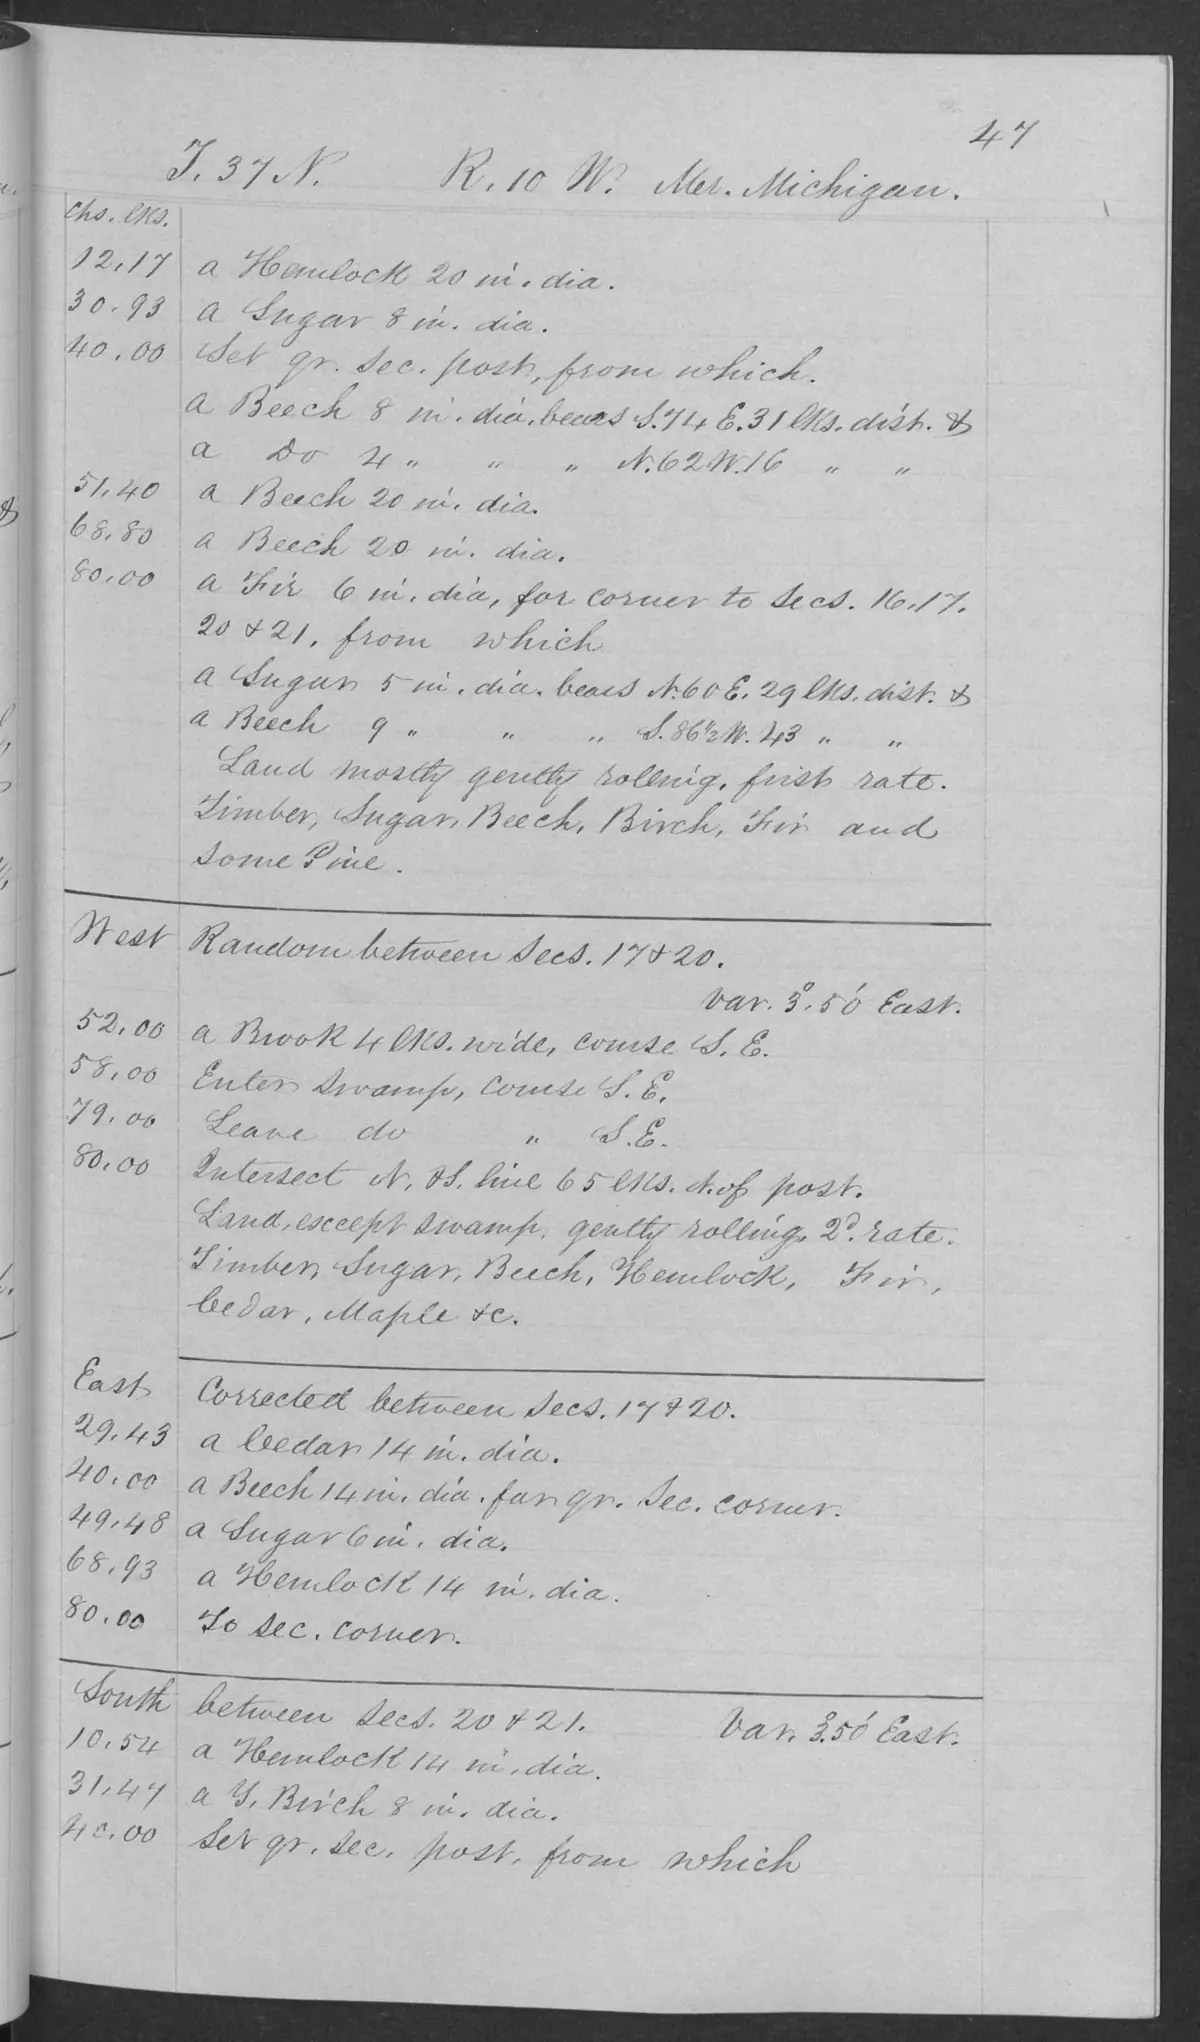 47
T. 37 N. R. 10 W. Mer. Michigan.
Chs. lks.
12.17 a Hemlock 20 in. dia.
30.93 a Sugar 8 in. dia.
40.00 Set qr. Sec. post, from which.
a Beech 8 in. dia. bears S. 74 E. 31 lks. dist. &
a Do 4 " " " N. 62 W. 16 " "
51.40 a Beech 20 in. dia.
68.80 a Beech 20 in. dia.
80.00 a Fir 6 in. dia, for corner to Secs. 16.17.
20 & 21, from which
a Sugar 5 in. dia. bears N. 60 E. 29 lks. dist. &
a Beech 9 " " " S. 86½ W. 43 " "
Land mostly gently rolling, first rate.
Timber, Sugar, Beech, Birch, Fir and
some Pine.
West Random between Secs. 17 & 20.
Var. 3°.50' East.
52.00 a Brook 4 lks. wide, course S. E.
58.00 Enter swamp, course S. E.
79.00 Leave do " S. E.
80.00 Intersect N. & S. line 65 lks. N. of post.
Land, except swamp, gently rolling, 2d. rate.
Timber, Sugar, Beech, Hemlock, Fir,
Cedar, Maple &c.
East Corrected between Secs. 17 & 20.
29.43 a Cedar 14 in. dia.
40.00 a Beech 14 in. dia. for qr. Sec. corner.
49.48 a Sugar 6 in. dia.
68.93 a Hemlock 14 in. dia.
80.00 To Sec. corner.
South between Secs. 20 & 21. Var. 3°.50' East.
10.54 a Hemlock 14 in. dia.
31.47 a Y. Birch 8 in. dia.
40.00 Set qr. Sec. post, from which